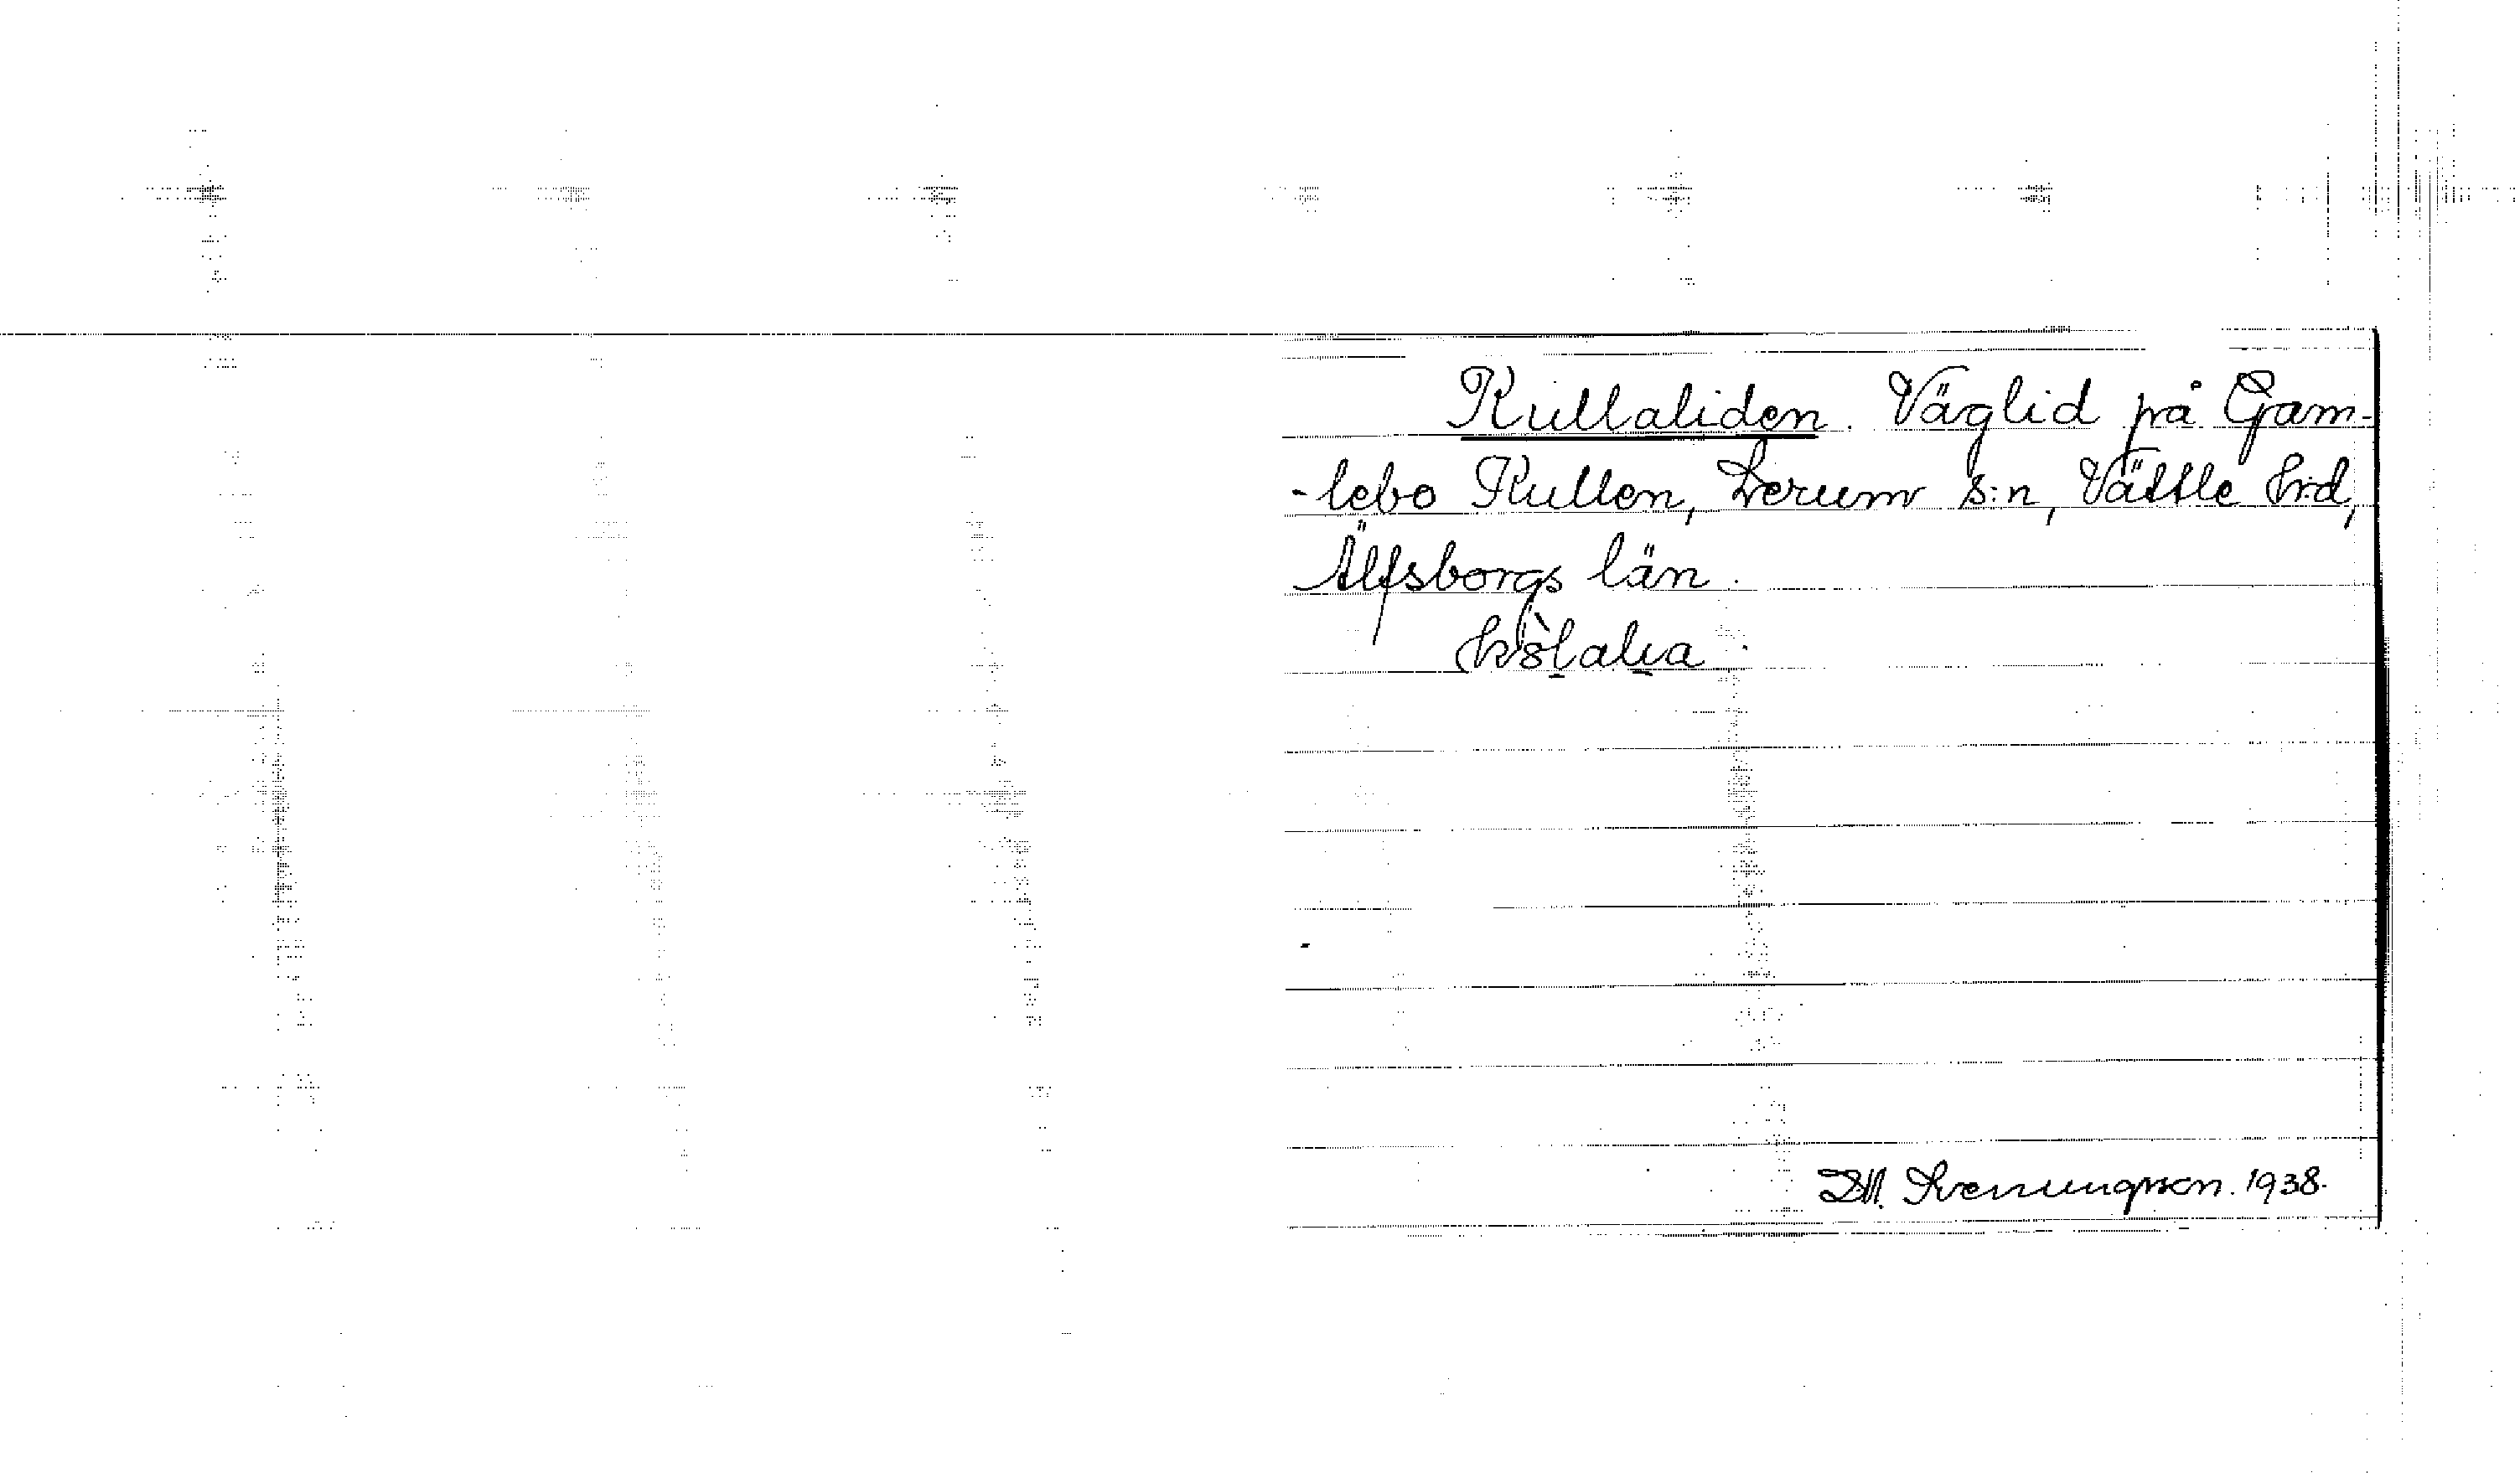 Kullaliden. Väglid på Gam-
-lebo Kullen, Lerum s:n, Vättle h:d,
Älfsborgs län.
D.M. Svenungsson. 1938.